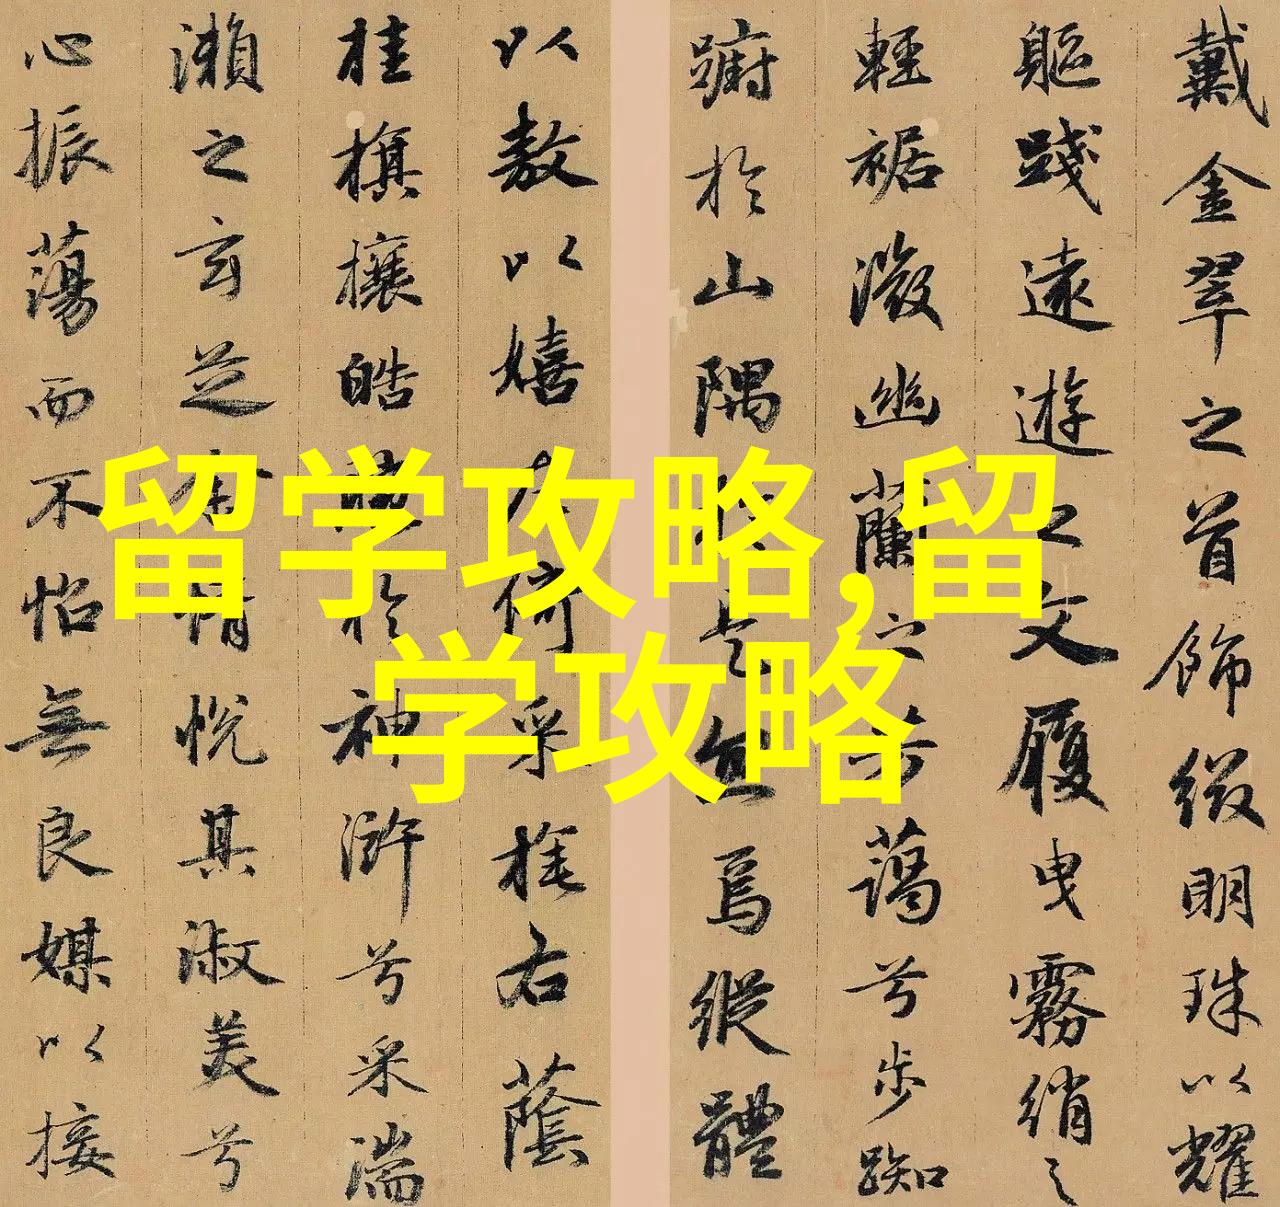 留学攻略,留
学攻略
戴金翠之首飾綴明珠以耀
軀踐遠遊之文履曳霧綃之
輕裾微幽蘭之芳藹兮步踟
蹰於山隅於是忽焉縱體
以敖以嬉左倚采旄右蔭
桂旗攘皓腕於神滸兮采湍
瀨之玄芝余情悅其淑美兮
心振蕩而不怡無良媒以接